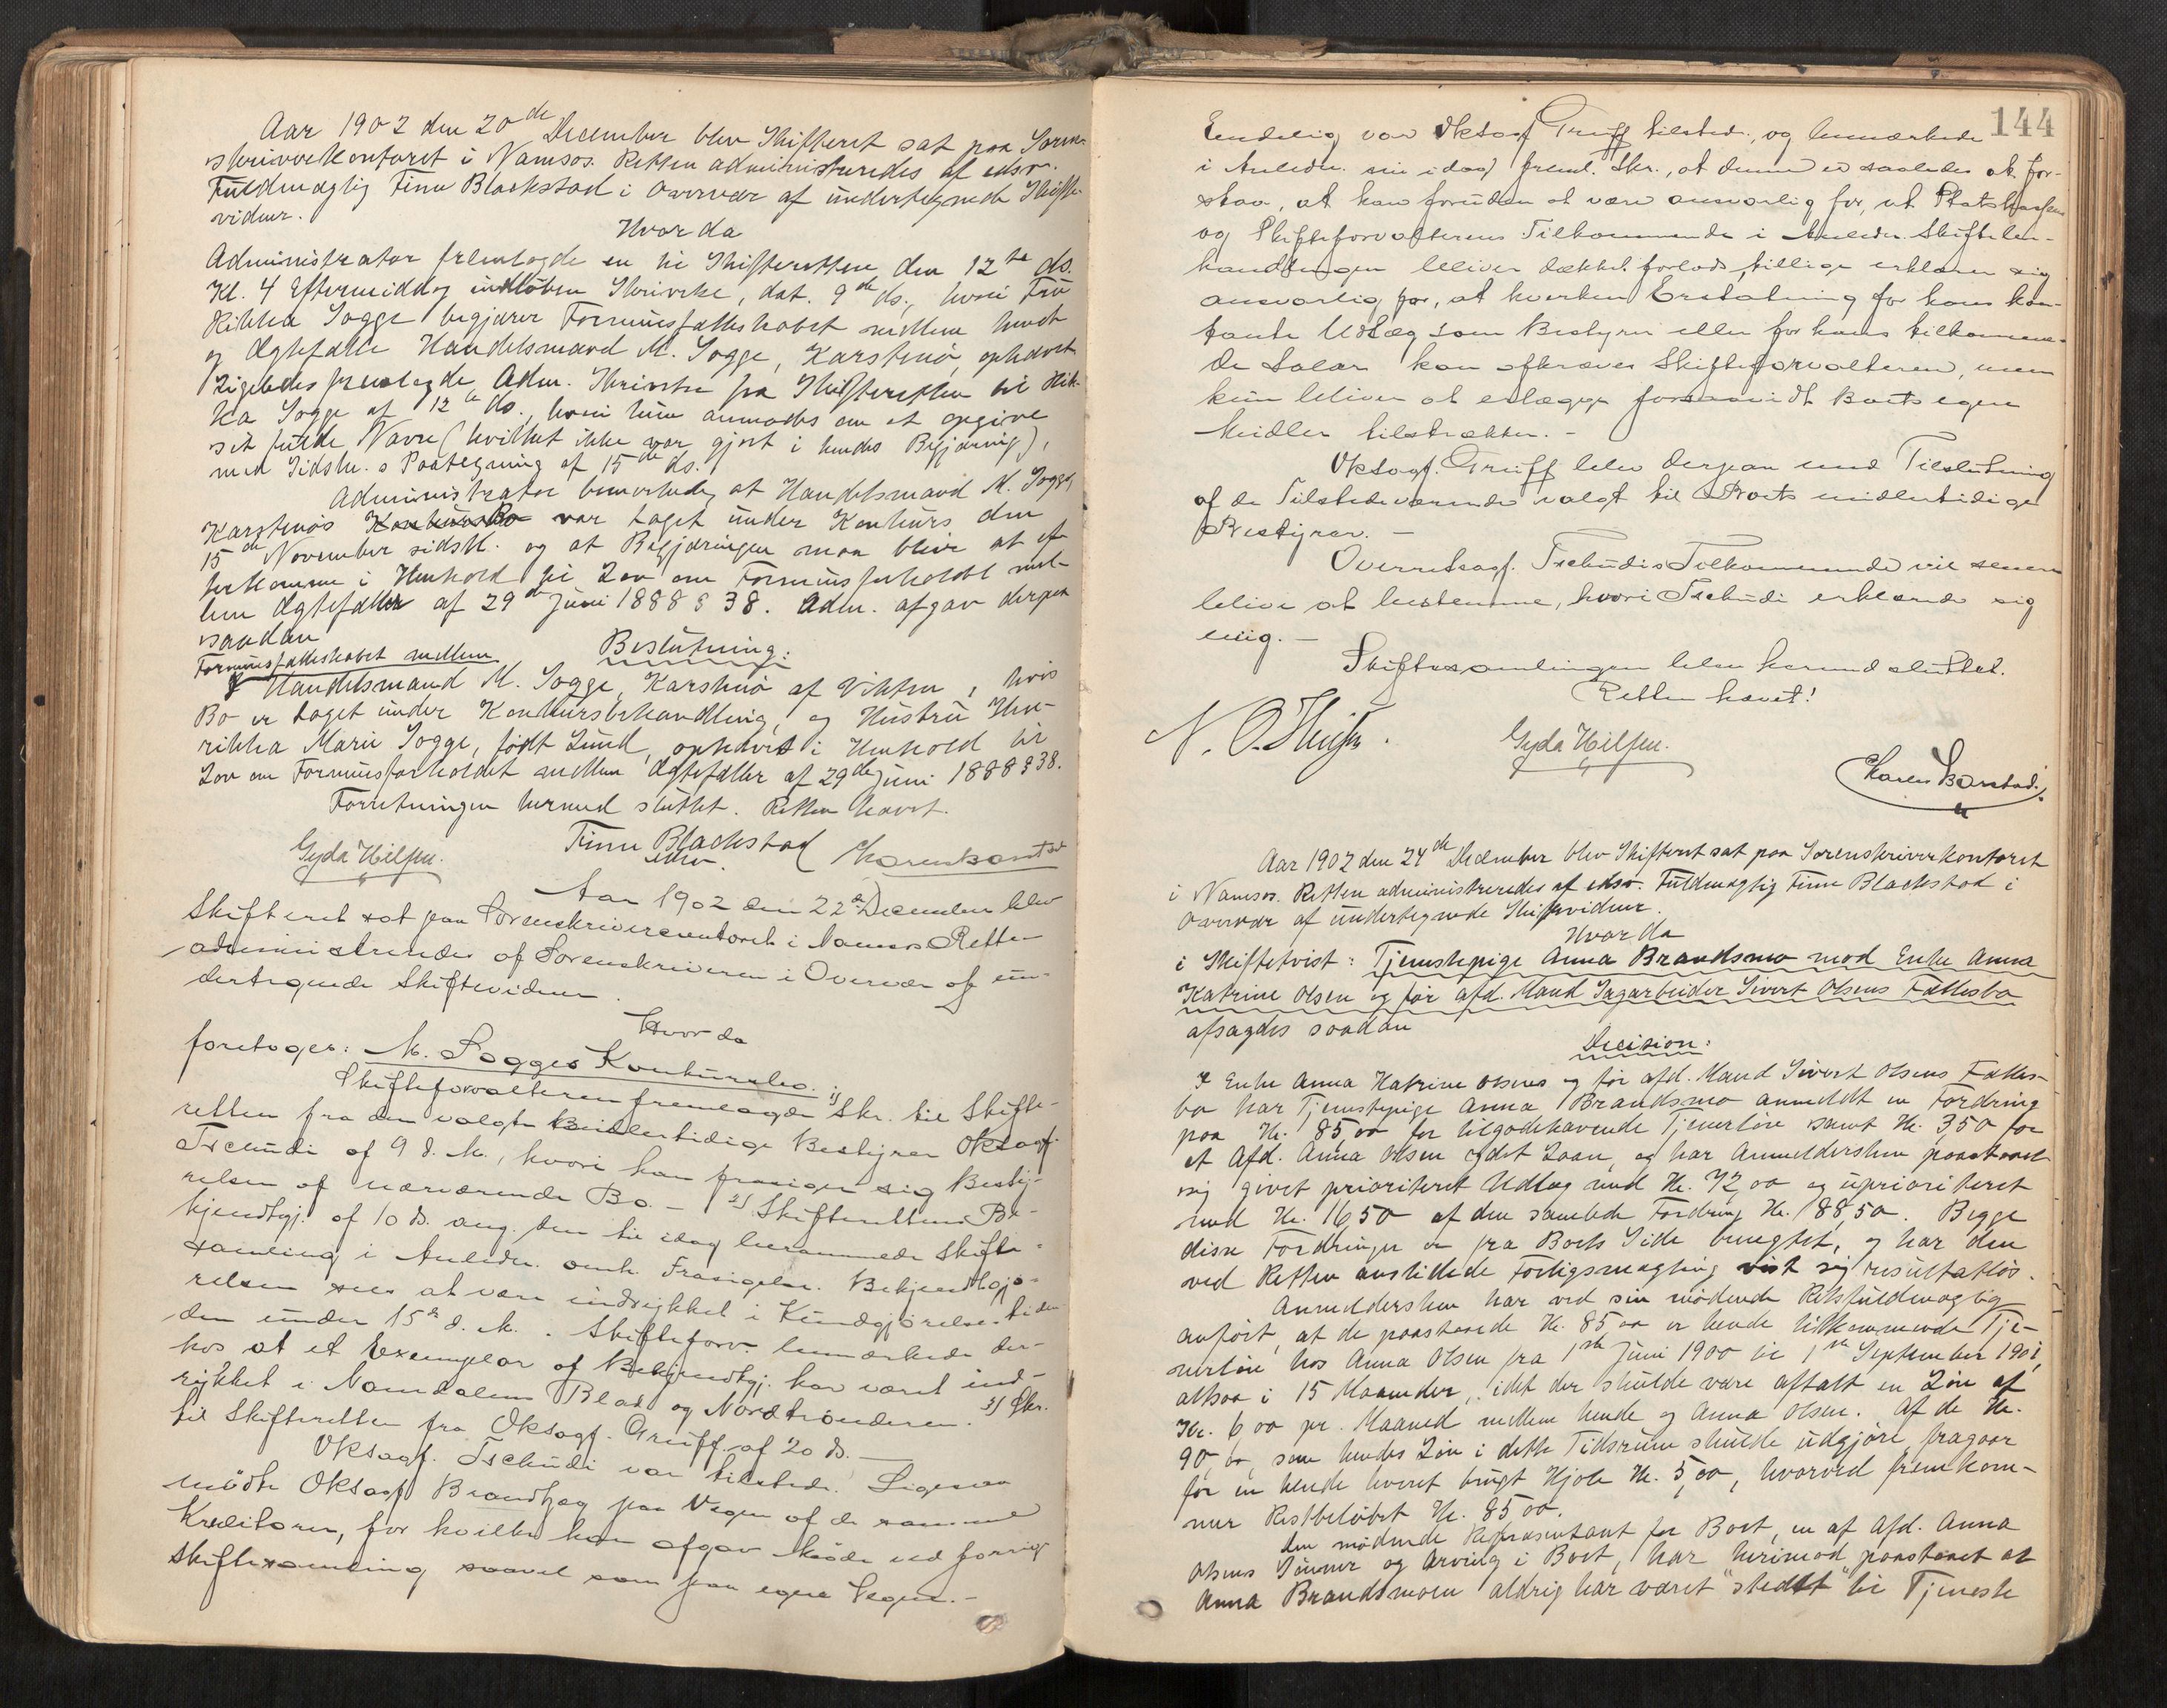 Aar 1902 den 20de December blev Skifteret sat paa Soren-
skriverkontoret i Namsos. Retten administreredes af edsv.
Fuldmægtig Finn Blackstad i Overvær af undertegnede Skifte-
vidner.
Hvorda
Administrator fremlagde en til Skifteretten den 12te ds.
Kl. 4 Eftermiddag indløben Skrivelse, dat. 9de ds., hvori Fru
Rikka Sogge begjærer Formuesfællesskabet mellem hende
og Ægtefælle Handelsmand M. Sogge, Karstenø, ophævet.
Ligeledes fremlagde Adm. Skrivelse fra Skifteretten til Rik-
ka Sogge af 12te ds., hvori hun anmodes om at opgive
sit fulde Navn (hvilket ikke var gjort i hendes Begjæring),
med Sidstn.s Paategning af 15de ds.
Administrator bemærkede, at Handelsmand M. Sogge
Karstenøs Konkursbo var taget under Konkurs den
15de November sidstl. og at Begjæringen maa blive at ef-
terkomme i Henhold til Lov om Formuesforholdet mel-
lem Ægtefæller af 29de Juni 1888 § 38. Adm. afgav derpaa
saadan
Beslutning:
Formuesfællesskabet mellem
Handelsmand M. Sogge, Karstenø af Vikten, hvis
Bo er taget under Konkursbehandling, og Hustru Hen-
rikka Marie Sogge, født Lund, ophævet i Henhold til
Lov om Formuesforholdet mellem Ægtefæller af 29de Juni 1888 § 38.
Forretningen hermed sluttet. Retten hævet.
Finn Blackstad
edsv.
Gyda Hilsen. Karen Barstad
Aar 1902 den 22de December blev
Skifteret sat paa Sorenskrivercontoret i Namsos Retten
administreredes af Sorenskriveren i Overvær af un-
dertegnede Skiftevidner.
Hvor da
foretoges: M. Sogges Konkursbo.
Skifteforvalteren fremlagde 1) Skr. til Skifte-
retten fra den valgte Midlertidige Bestyrer Oksagf.
Tschudi af 9 d. M., hvori han frasiger sig Besty-
relsen af nærværende Bo. - 2) Skifterettens Be-
kjendtgj. af 10 ds. ang. den til idag berammede Skifte-
samling i Anledn. omh. Frasigelse. Bekjendtgjø-
relsen sees at være indrykket i Kundgjørelsestiden-
den under 15de d. M. Skifteforv. bemærkede der-
hos at et Exemplar af Bekjendtgj. har været ind-
rykket i Namdalens Blad og Nordtrønderen. 3) Skr.
til Skifteretten fra Oksagf. Greiff af 20 ds.
Oksagf. Tschudi var tilstede. Ligesaa
mødte Oksagf Brandtzæg paa Vegne af de samme
Kreditorer, for hvilke han afgav Møde ved forrige
Skiftesamling saavel som paa egne Vegne.-
144
Endelig var Oksagf Greiff tilstede, og bemærkede
i Anledn. sin idag freml. Skr., at denne er saaledes at for-
staa, at han foruden at være ansvarlig for, at Statskassens
og Skifteforvalterens Tilkommende i Anledn. Skiftebe-
handlingen bliver dækket forlods, tillige erklærer sig
ansvarlig for, at hverken Erstatning for hans kon-
tante Udlæg som Bestyrer eller for hans tilkommen-
de Salær kan afkræves Skifteforvalteren, men
kun bliver at erlægge forsaavidt Boets egne
Midler tilstrækker. -
Oksagf. Greiff blev derpaa med Tilslutning
af de Tilstedeværende valgt til Boets midlertidige
Bestyrer. -
Overretsagf. Tschudis Tilkommende vil senere
blive at bestemme, hvori Tschudi erklærede sig
enig. -
Skiftesamlingen blev hermed sluttet.
Retten hævet!
Gyda Hilsen.
Karen Barstad
Aar 1902 den 24de December blev Skifteret sat paa Sorenskriverkontoret
i Namsos. Retten administreredes af edsv. Fuldmægtig Finn Blackstad i
Overvær af undertegnede Skiftevidner.
Hvorda
i Skiftetvist: Tjenestepige Anna Brandsmo mod Enke Anna
Katrine Olsen og før afd. Mand Sagarbeider Sivert Olsens Fællesbo
afsagdes saadan
Decision:
I Enke Anna Katrine Olsens og før afd. Mand Sivert Olsens Fælles-
bo har Tjenestepige Anna Brandsmo anmeldt en Fordring
paa Kr. 85,00 for tilgodehavende Tjenerløn samt Kr. 3,50 for
et Afd. Anna Olsen ydet Laan, og har Anmeldersken paastaaet
sig givet prioriteret Udlæg med Kr. 72,00 og uprioriteret
med Kr. 16,50 af den samlede Fordring Kr. 88,50. Begge
disse Fordringer er fra Boets Side benægtet, og har den
ved Retten anstillede Forligsmægling vist sig resultatløs.
Anmeldersken har ved sin mødende Retsfuldmægtig
anført, at de paastaaede Kr. 85,00 er hende tilkommende Tje-
nerløn hos Anna Olsen fra 1ste Juni 1900 til 1ste September 1901,
altsaa i 15 Maaneder, idet der skulde være aftalt en Løn af
Kr. 6,00 pr. Maaned mellem hende og Anna Olsen. Af de Kr.
90,00, som hendes Løn i dette Tidsrum skulde udgjøre, fragaar
for en hende leveret brugt Kjole Kr. 5,00, hvorved fremkom-
mer Restbeløbet Kr. 85,00.
Den mødende Repræsentant for Boet, en af Afd. Anna
Olsens Sønner og Arving i Boet, har herimod paastaaet at
Anna Brandsmoen aldrig har været "stedt" til Tjeneste